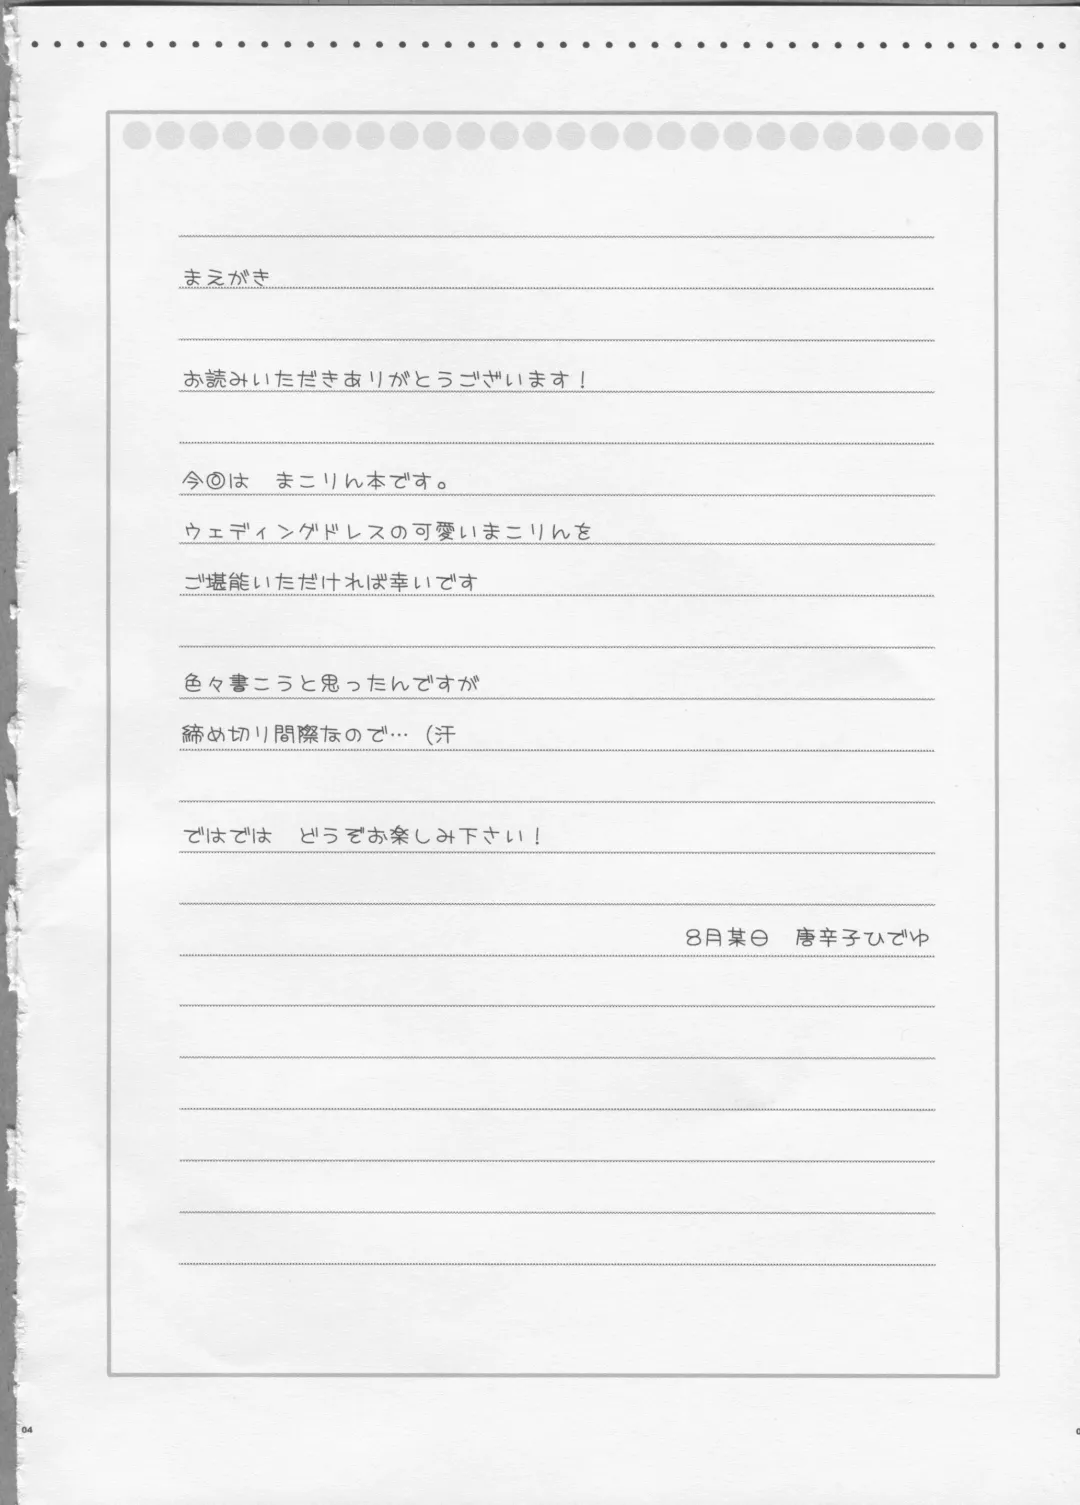 まえがき
お読みいただきありがとうございます！
今回は　まこりん本です。
ウェディングドレスの可愛いまこりんを
ご堪能いただければ幸いです
色々書こうと思ったんですが
締め切り間際なので…（汗
ではでは　どうぞお楽しみ下さい！
8月某日　唐辛子ひでゆ
04